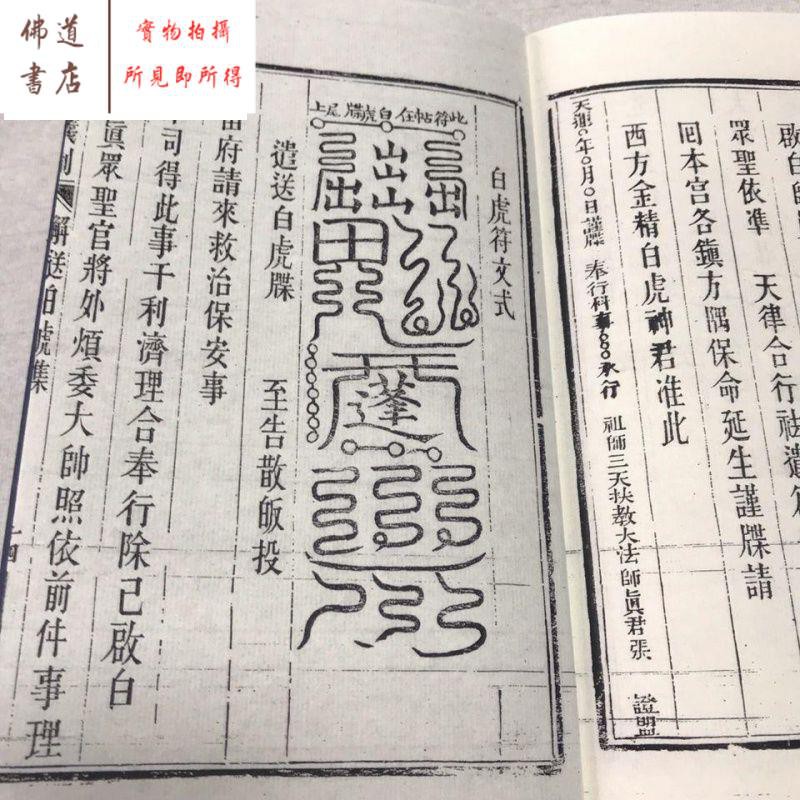 佛道
書店
實物拍攝
所見即所得
啟白師
眾聖依準 天律合行祛遣
回本宮各鎮方隅保命延生謹牒請
西方金精白虎神君准此
天運○年○月○日謹牒 奉行科事○○○承行 祖師三天扶教大法師眞君張 證盟
白虎符文式
此符帖在白虎牒尾上
蓬
遣送白虎牒 至告散皈投
府請來救治保安事
司得此事干利濟理合奉行除已啟白
眞眾聖官將外煩委大帥照依前件事理
解送白虎集
十四